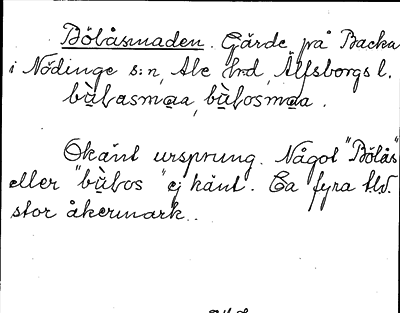 Bölåsmaden. Gärde på Backa
i Nödinge s:n, Ale hrd, Älfsborgs l.
bùlasmaa, bùlosmaa.
Okänt ursprung. Något "Bölås"
eller "bùlos" ej känt. Ca fyra t.ld.
stor åkermark.